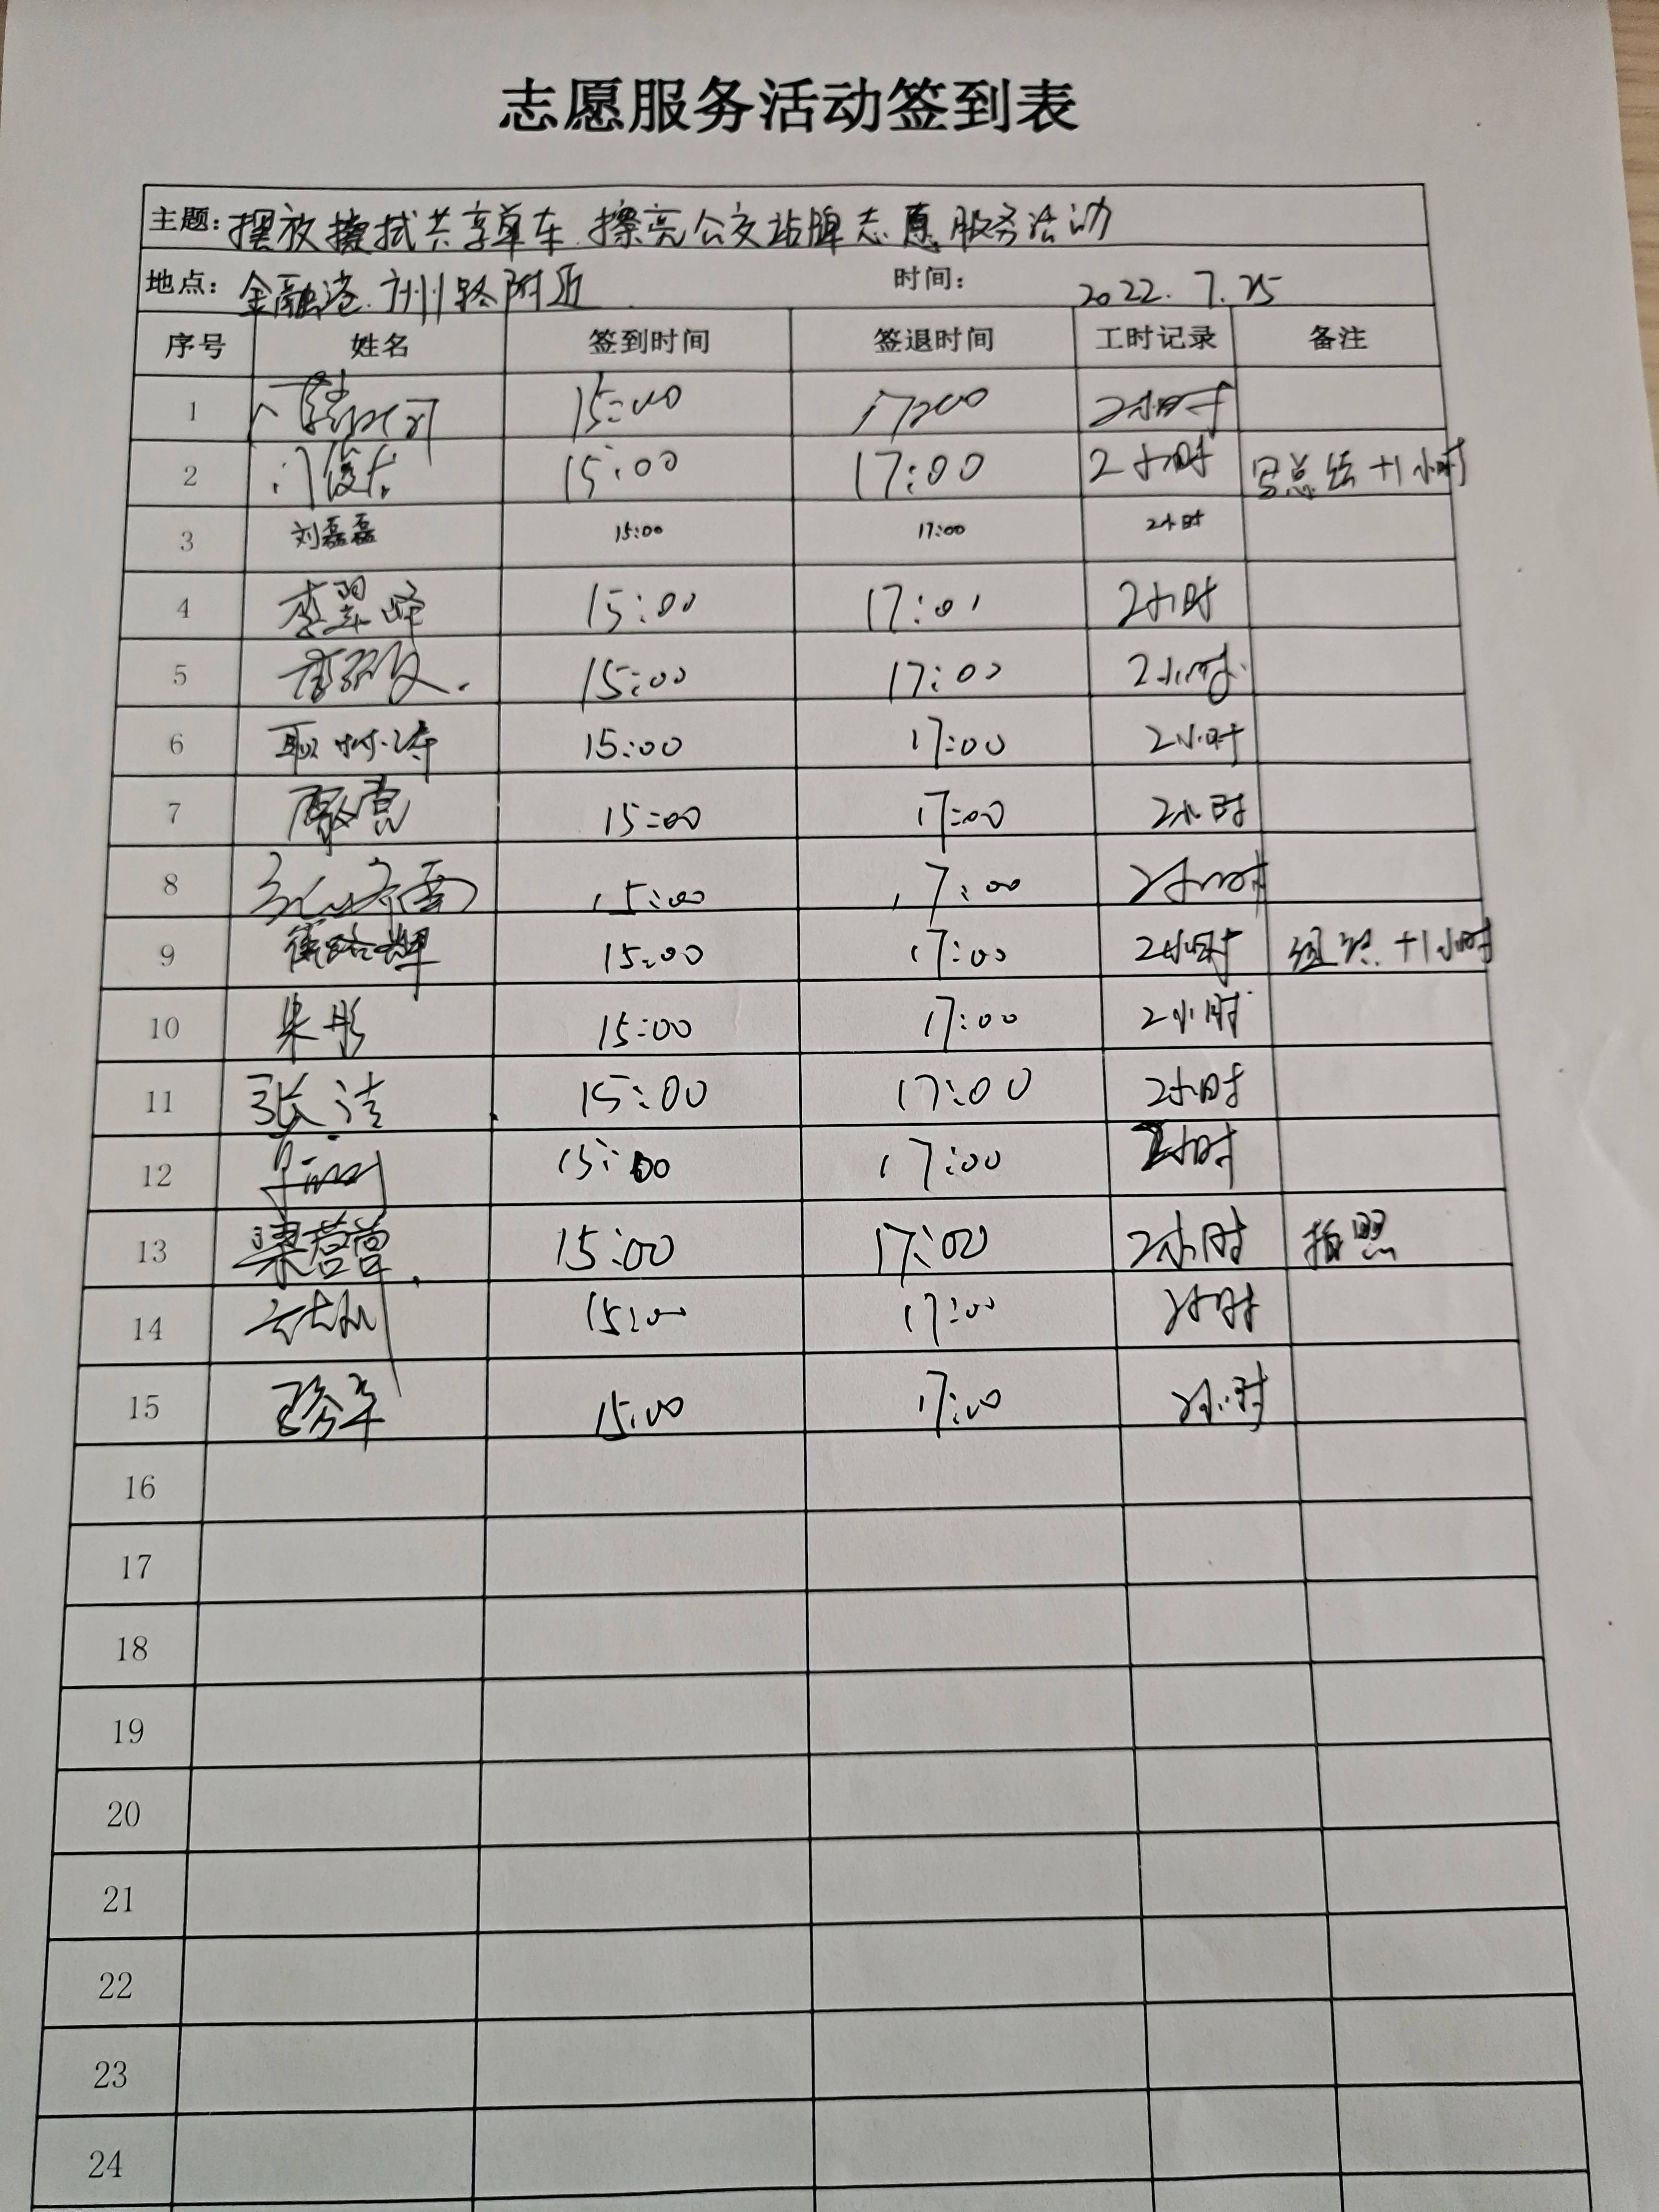 志愿服务活动签到表
主题: 摆放擦拭共享单车、擦亮公交站牌志愿服务活动
地点: 金融港、广州路附近 时间: 2022.7.25
序号 姓名 签到时间 签退时间 工时记录 备注
1 15:00 17:00 2小时
2 15:00 17:00 2小时 写总结+1小时
3 刘磊磊 15:00 17:00 2小时
4 李翠峰 15:00 17:00 2小时
5 15:00 17:00 2小时
6 15:00 17:00 2小时
7 15:00 17:00 2小时
8 15:00 17:00 2小时
9 15:00 17:00 2小时 +1小时
10 朱彤 15:00 17:00 2小时
11 张洁 15:00 17:00 2小时
12 15:00 17:00 2小时
13 梁营营 15:00 17:00 2小时 拍照
14 15:00 17:00 2小时
15 15:00 17:00 2小时
16
17
18
19
20
21
22
23
24